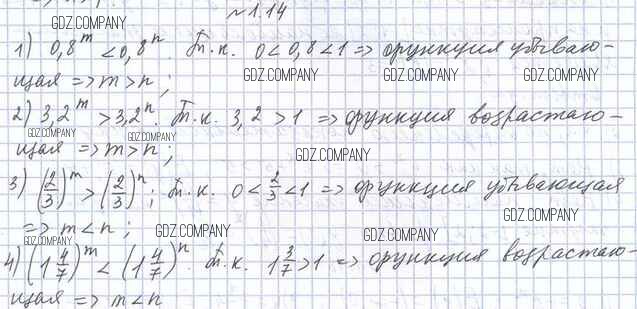 № 1.14
GDZ.COMPANY
GDZ.COMPANY
1) 0,8^m < 0,8^n. Т.к. 0 < 0,8 < 1 => функция убываю-
GDZ.COMPANY GDZ.COMPANY GDZ.COMPANY
щая => m > n ;
2) 3,2^m > 3,2^n. Т.к. 3,2 > 1 => функция возрастаю-
GDZ.COMPANY GDZ.COMPANY
щая => m > n ;
GDZ.COMPANY
3) (2/3)^m > (2/3)^n ; Т.к. 0 < 2/3 < 1 => функция убывающая
GDZ.COMPANY
=> m < n ;
GDZ.COMPANY GDZ.COMPANY GDZ.COMPANY
4) (1 4/7)^m < (1 4/7)^n. Т.к. 1 3/7 > 1 => функция возрастаю-
щая => m < n